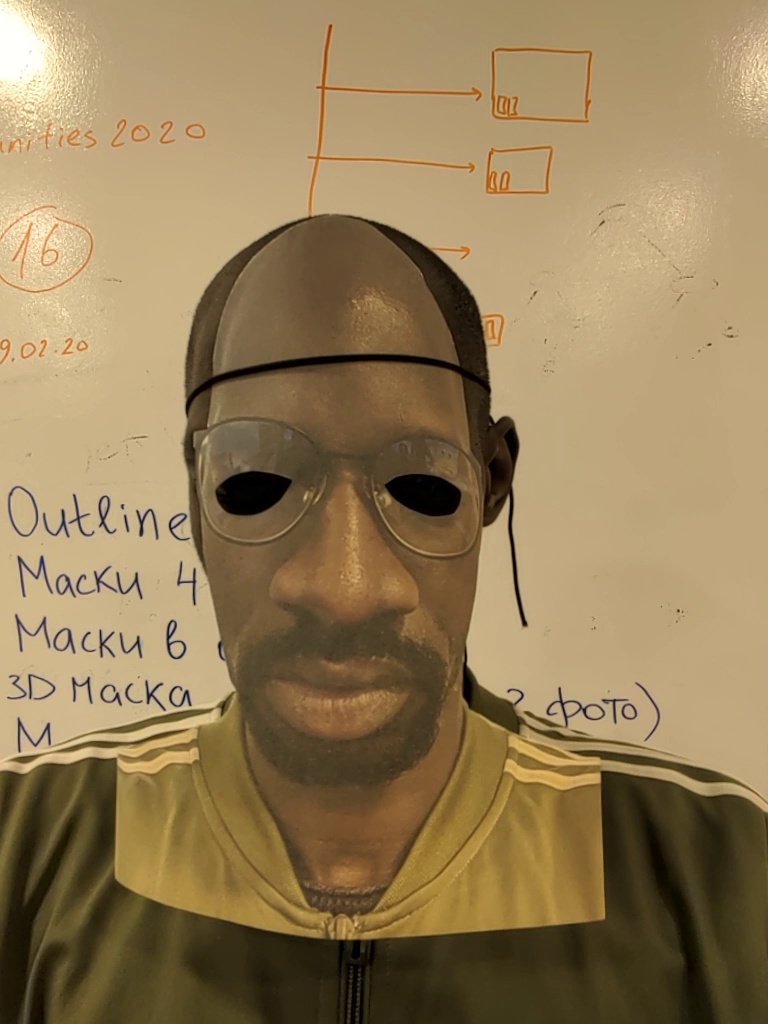 2020
16
9.02.20
Outline
Маски 4
Маски в
3D Маска
фото)
М